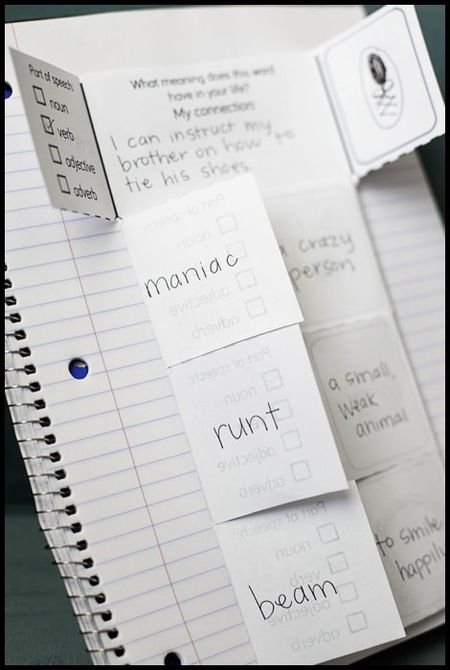 Part of speech:
noun
verb
adjective
adverb
What meaning does this word
have in your life?
My connection:
I can instruct my
brother on how to
tie his shoes.
Part of speech:
noun
maniac
adjective
adverb
a crazy
person
Part of speech:
noun
runt
adjective
adverb
a small,
weak
animal
Part of speech:
noun
verb
beam
adjective
adverb
to smile
happily